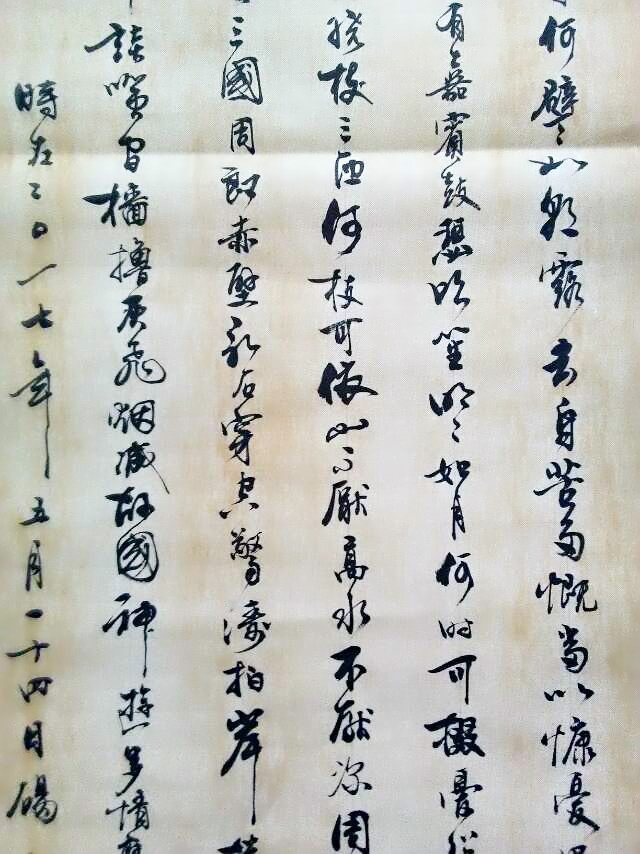 何譬如朝露去日苦多慨當以慷憂
有嘉賓鼓瑟吹笙明明如月何时可掇憂從
繞枝三匝何枝可依山不厭高水不厭深周
三國周郎赤壁亂石穿空驚濤拍岸
談笑間檣櫓灰飛烟滅故國神遊多情應
時在二〇一七年五月二十四日碭